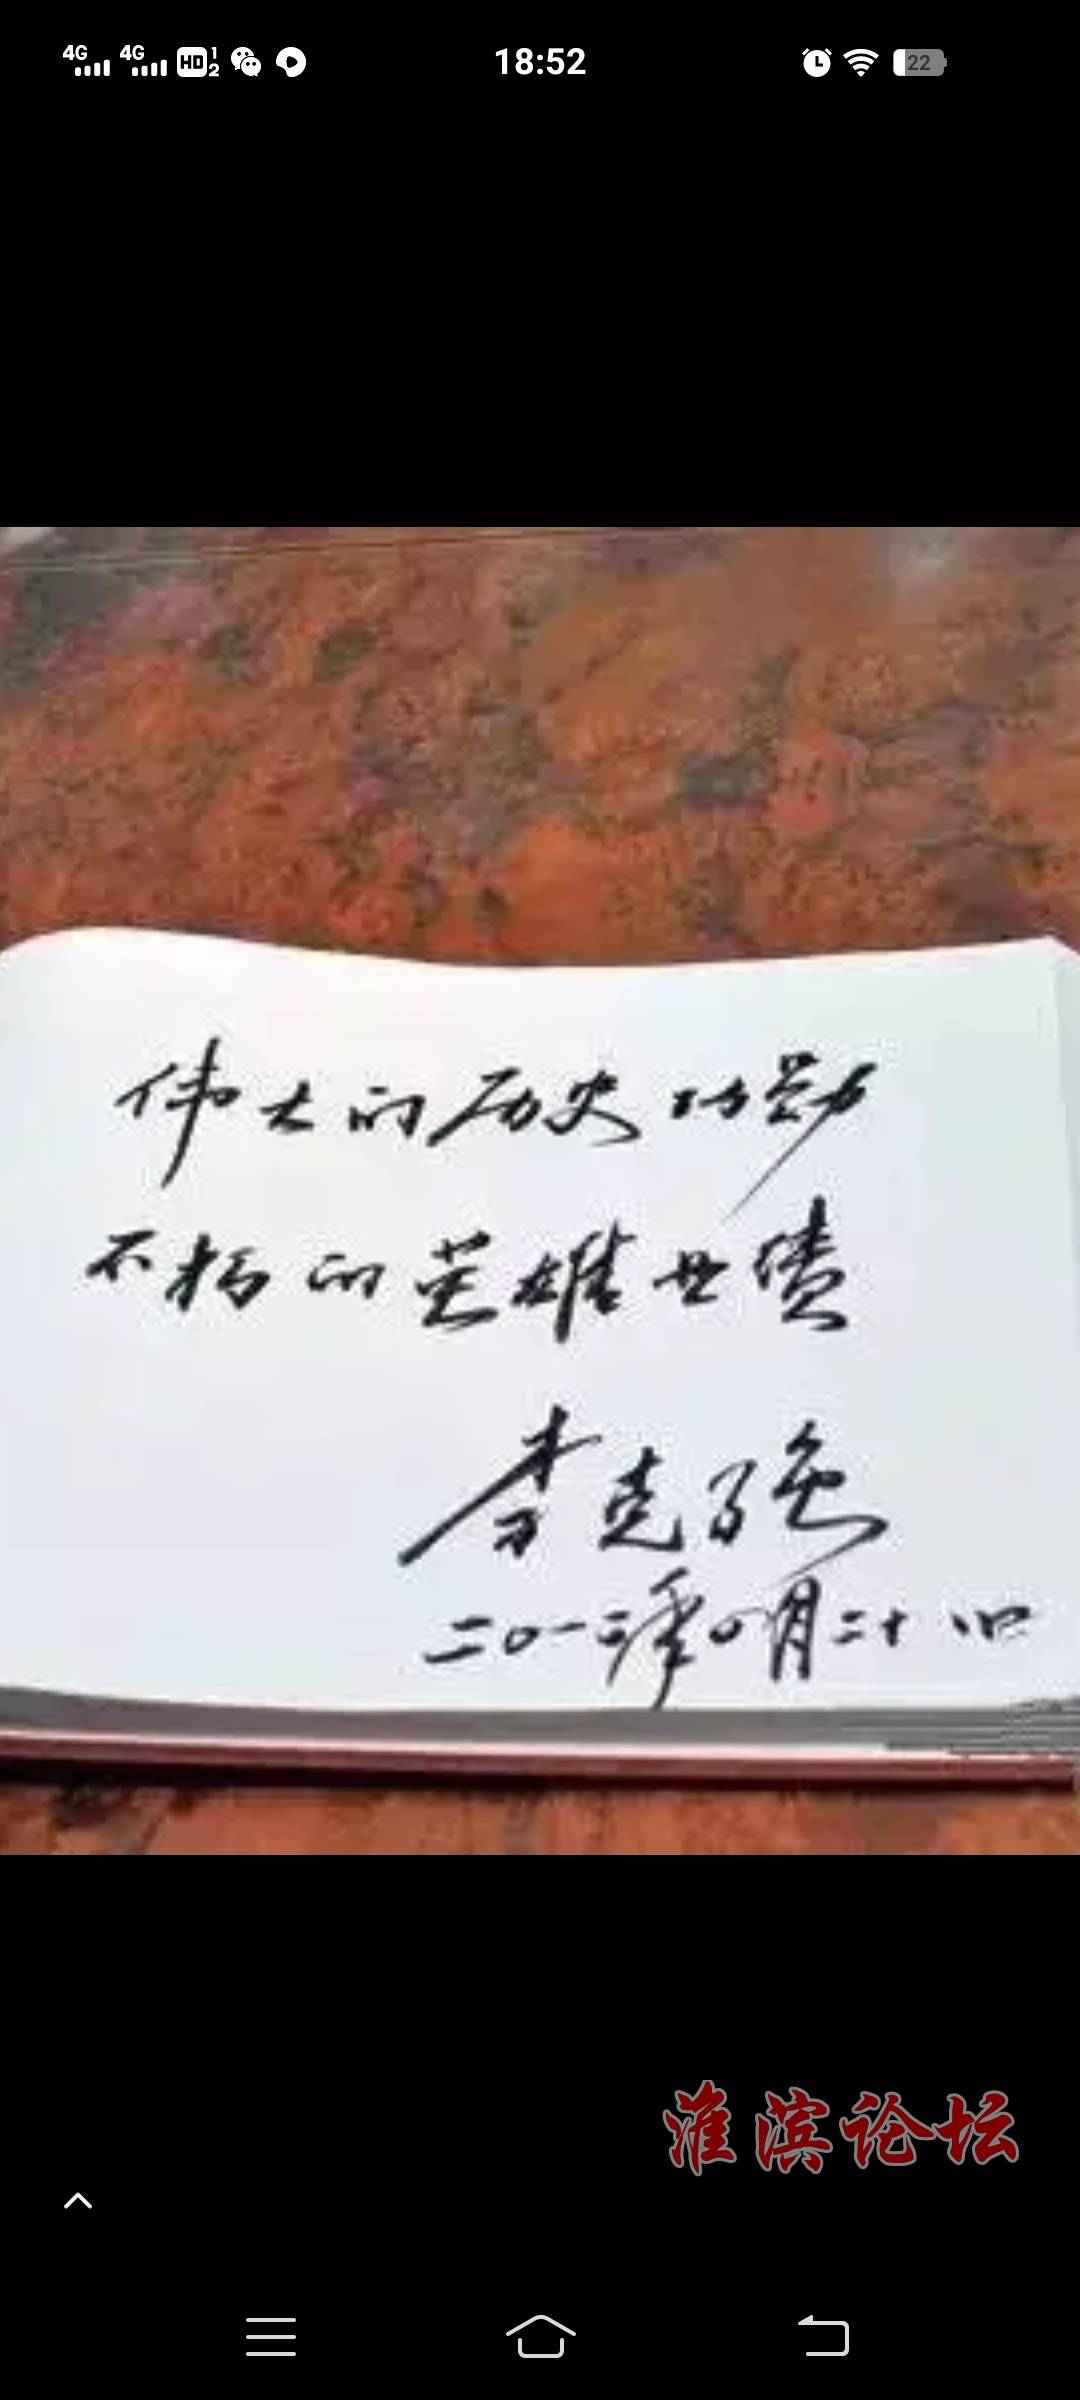 4G 4G HD 1 2 18:52 22
伟大的历史功勋
不朽的英雄业绩
李克强
二〇一二年〇四月二十四
淮滨论坛